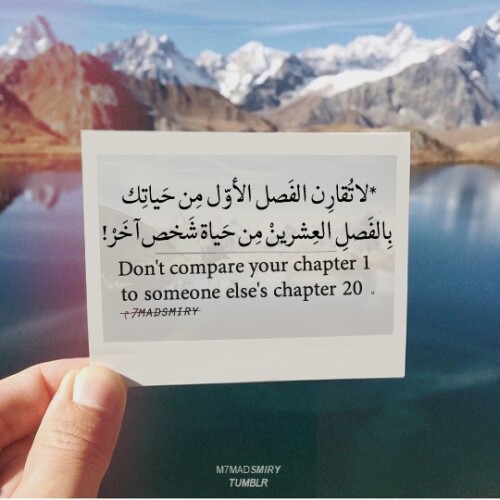 *لا تُقارِن الفَصل الأوّل مِن حَياتِك
بِالفَصلِ العِشرينْ مِن حَياة شَخص آخَرْ!
Don't compare your chapter 1
to someone else's chapter 20 .
م7MADSMIRY
M7MADSMIRY
TUMBLR